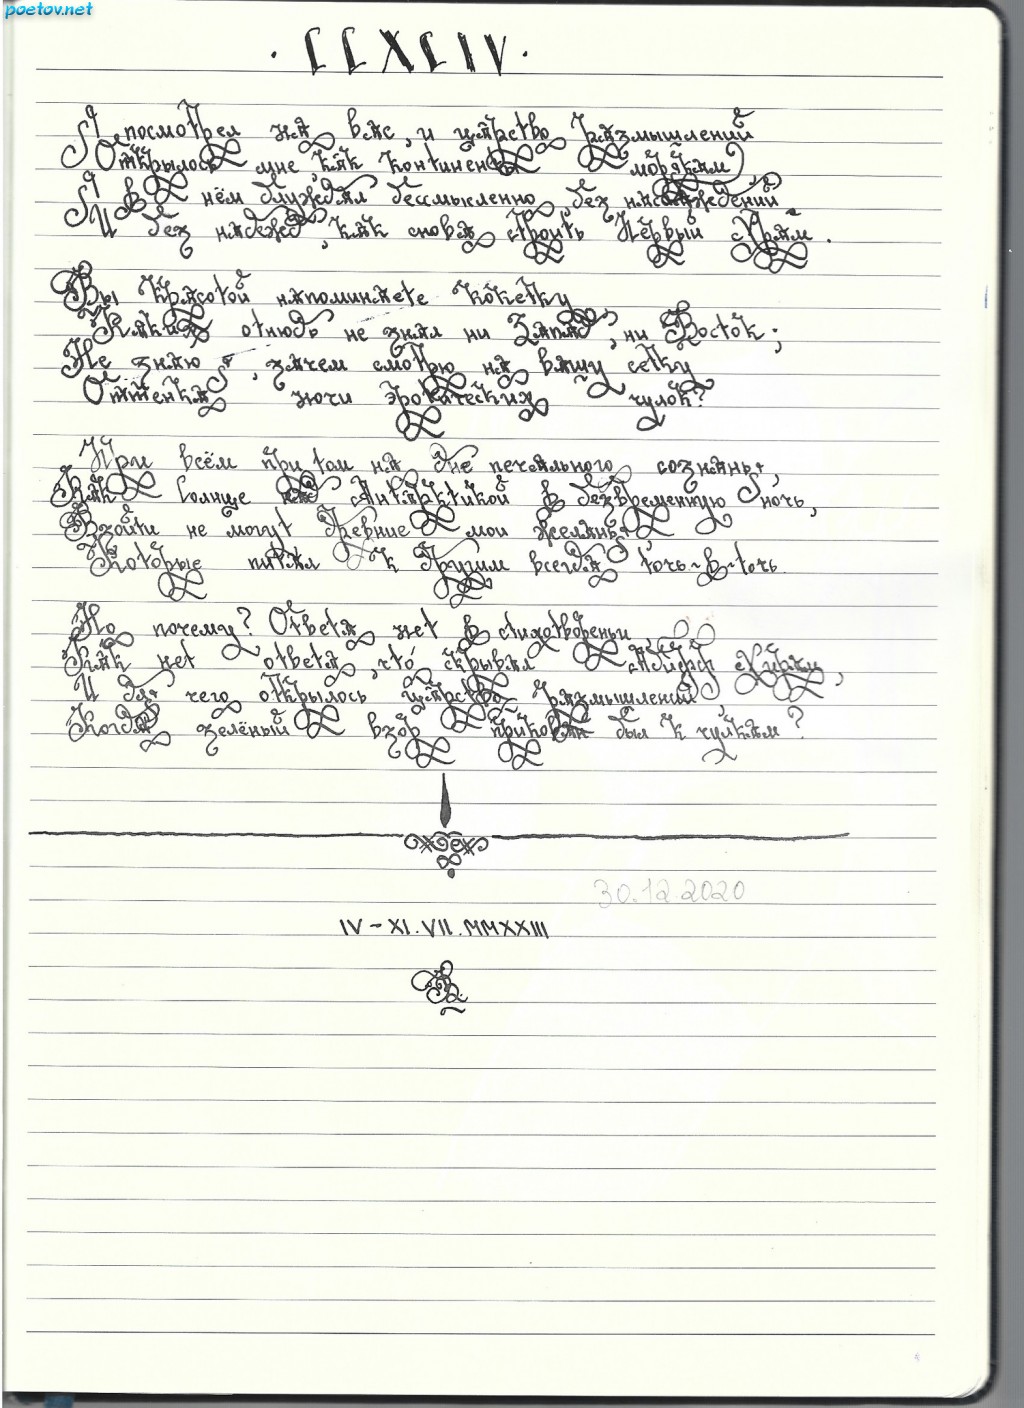 poetov.net
· CCXCIV ·
Я посмотрел на вас, и царство размышлений
Открылось мне, как континент морякам,
Я в нём блуждал бессмысленно, без наслаждений
И без надежд, как снова строить Первый Храм.
Вы красотой напоминаете кокетку,
Каких отнюдь не знал ни Запад, ни Восток;
Не знаю я, зачем смотрю на вашу сетку
Оттенка ночи эротических чулок?
При всём при том на дне печального сознанья,
Как Солнце над Антарктикой в безвременную ночь,
Взойти не могут древние мои желанья,
Которые питал к другим всегда точь-в-точь.
Но почему? Ответа нет в стихотвореньи,
Как нет ответа, что скрывал
И для чего открылось царство размышлений,
Когда зелёный взор прикован был к чулкам?
30.12.2020
IV - XI.VII.MMXXIII